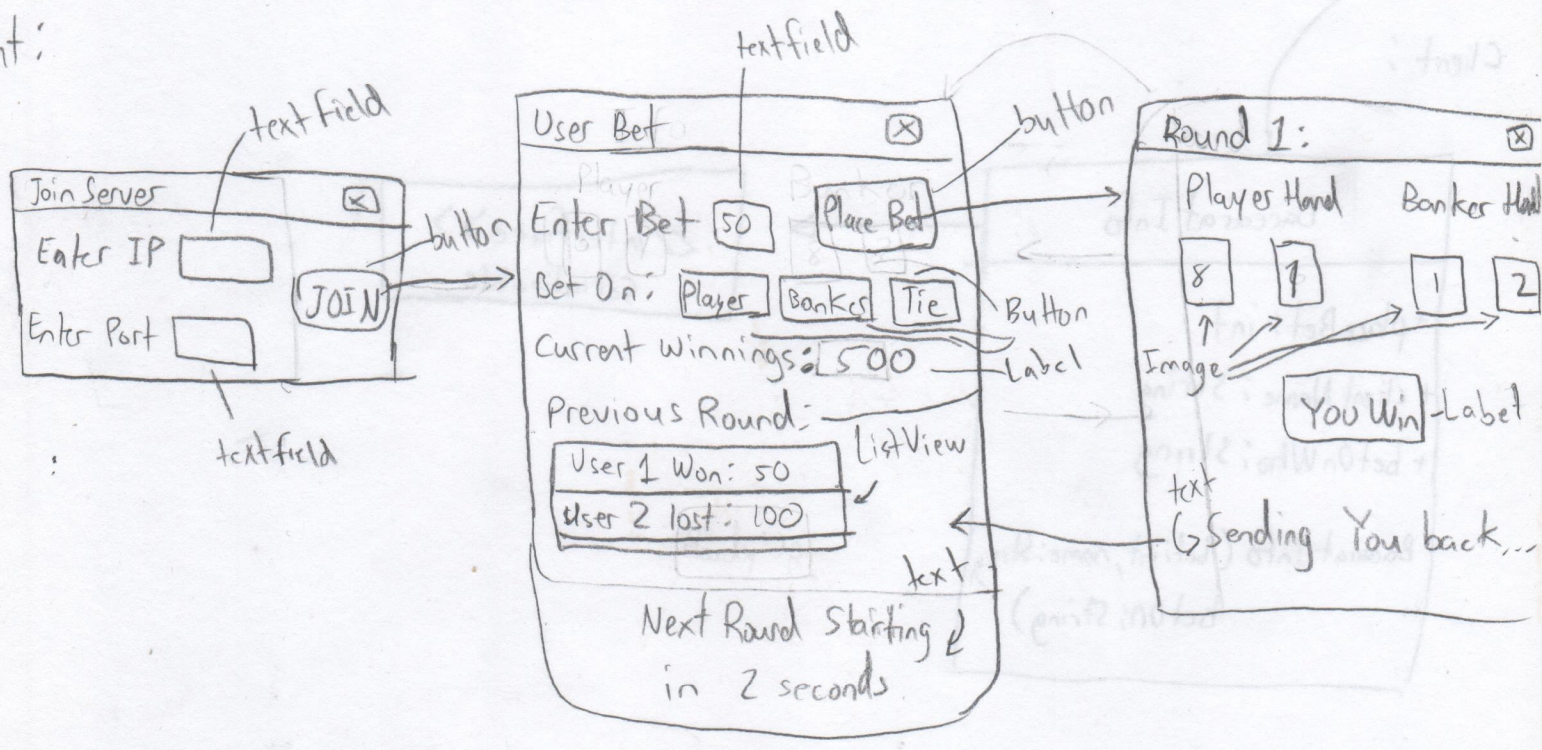 nt:
textfield
Join Server X
Enter IP
Enter Port
JOIN
button
textfield
textfield
User Bet X
Enter Bet 50 Place Bet
button
Bet On: Player Banker Tie
Button
Current Winnings: 500
Label
Previous Round:
ListView
User 1 Won: 50
User 2 lost: 100
text
Next Round Starting
in 2 seconds
Round 1: X
Player Hand Banker Hand
8 1 1 2
Image
You Win
Label
text
Sending You back...
Client:
Player
Baccarat Info
betOnWho: String